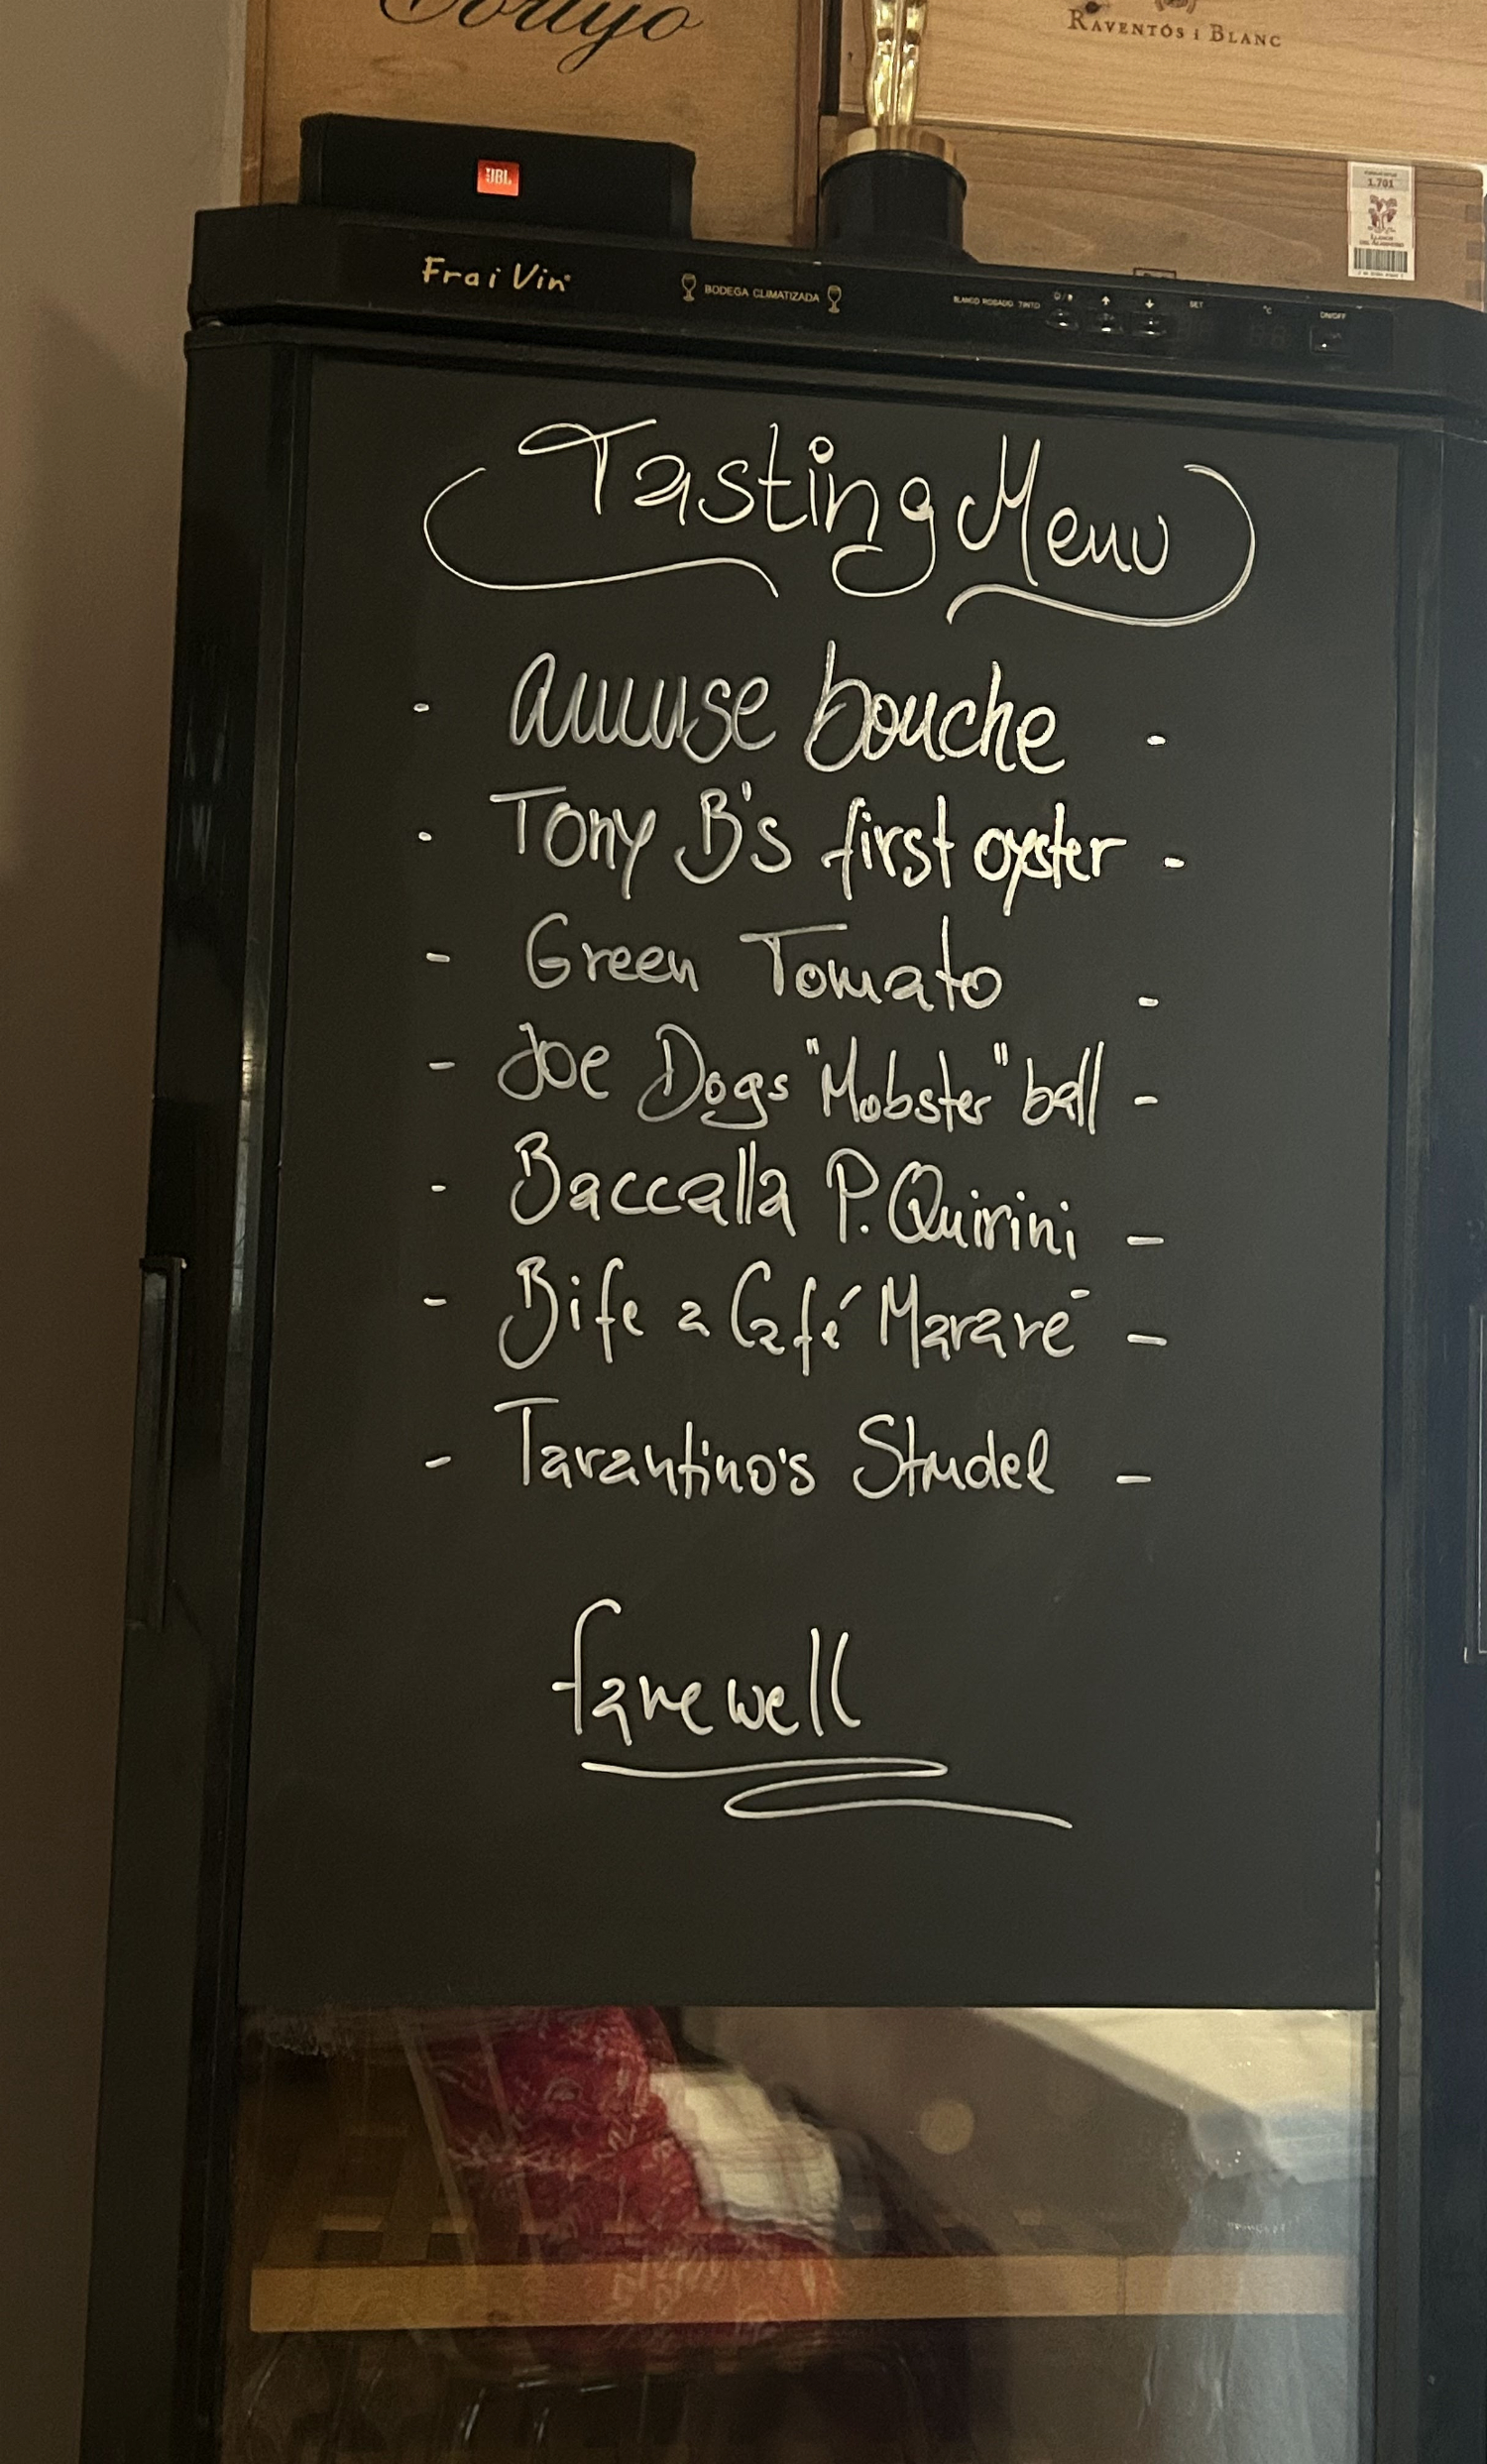 RAVENTÓS i BLANC
JBL
1.701
Frai Vin
BODEGA CLIMATIZADA
BLANCO ROSADO TINTO
SET
°C
ON/OFF
Tasting Menu
- amuse bouche -
- Tony B's first oyster -
- Green Tomato -
- Joe Dogs "Mobster" ball -
- Baccalla P. Quirini -
- Bife a Café Marare -
- Tarantino's Strudel -
farewell